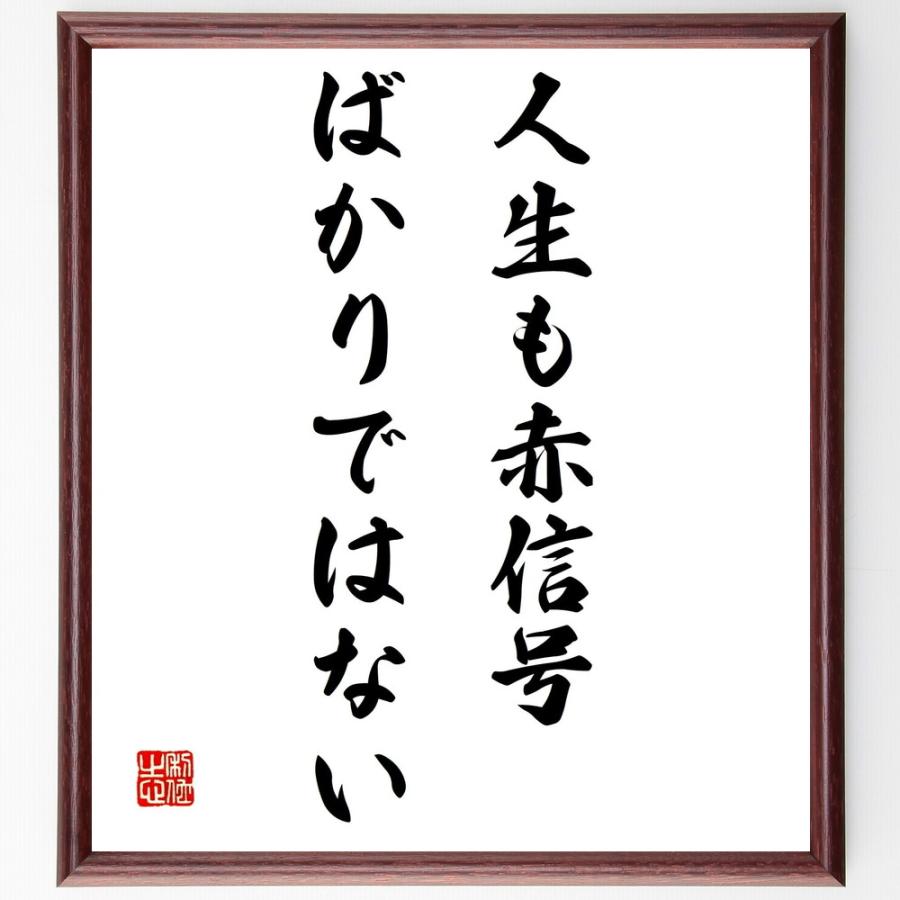 人生も赤信号
ばかりではない